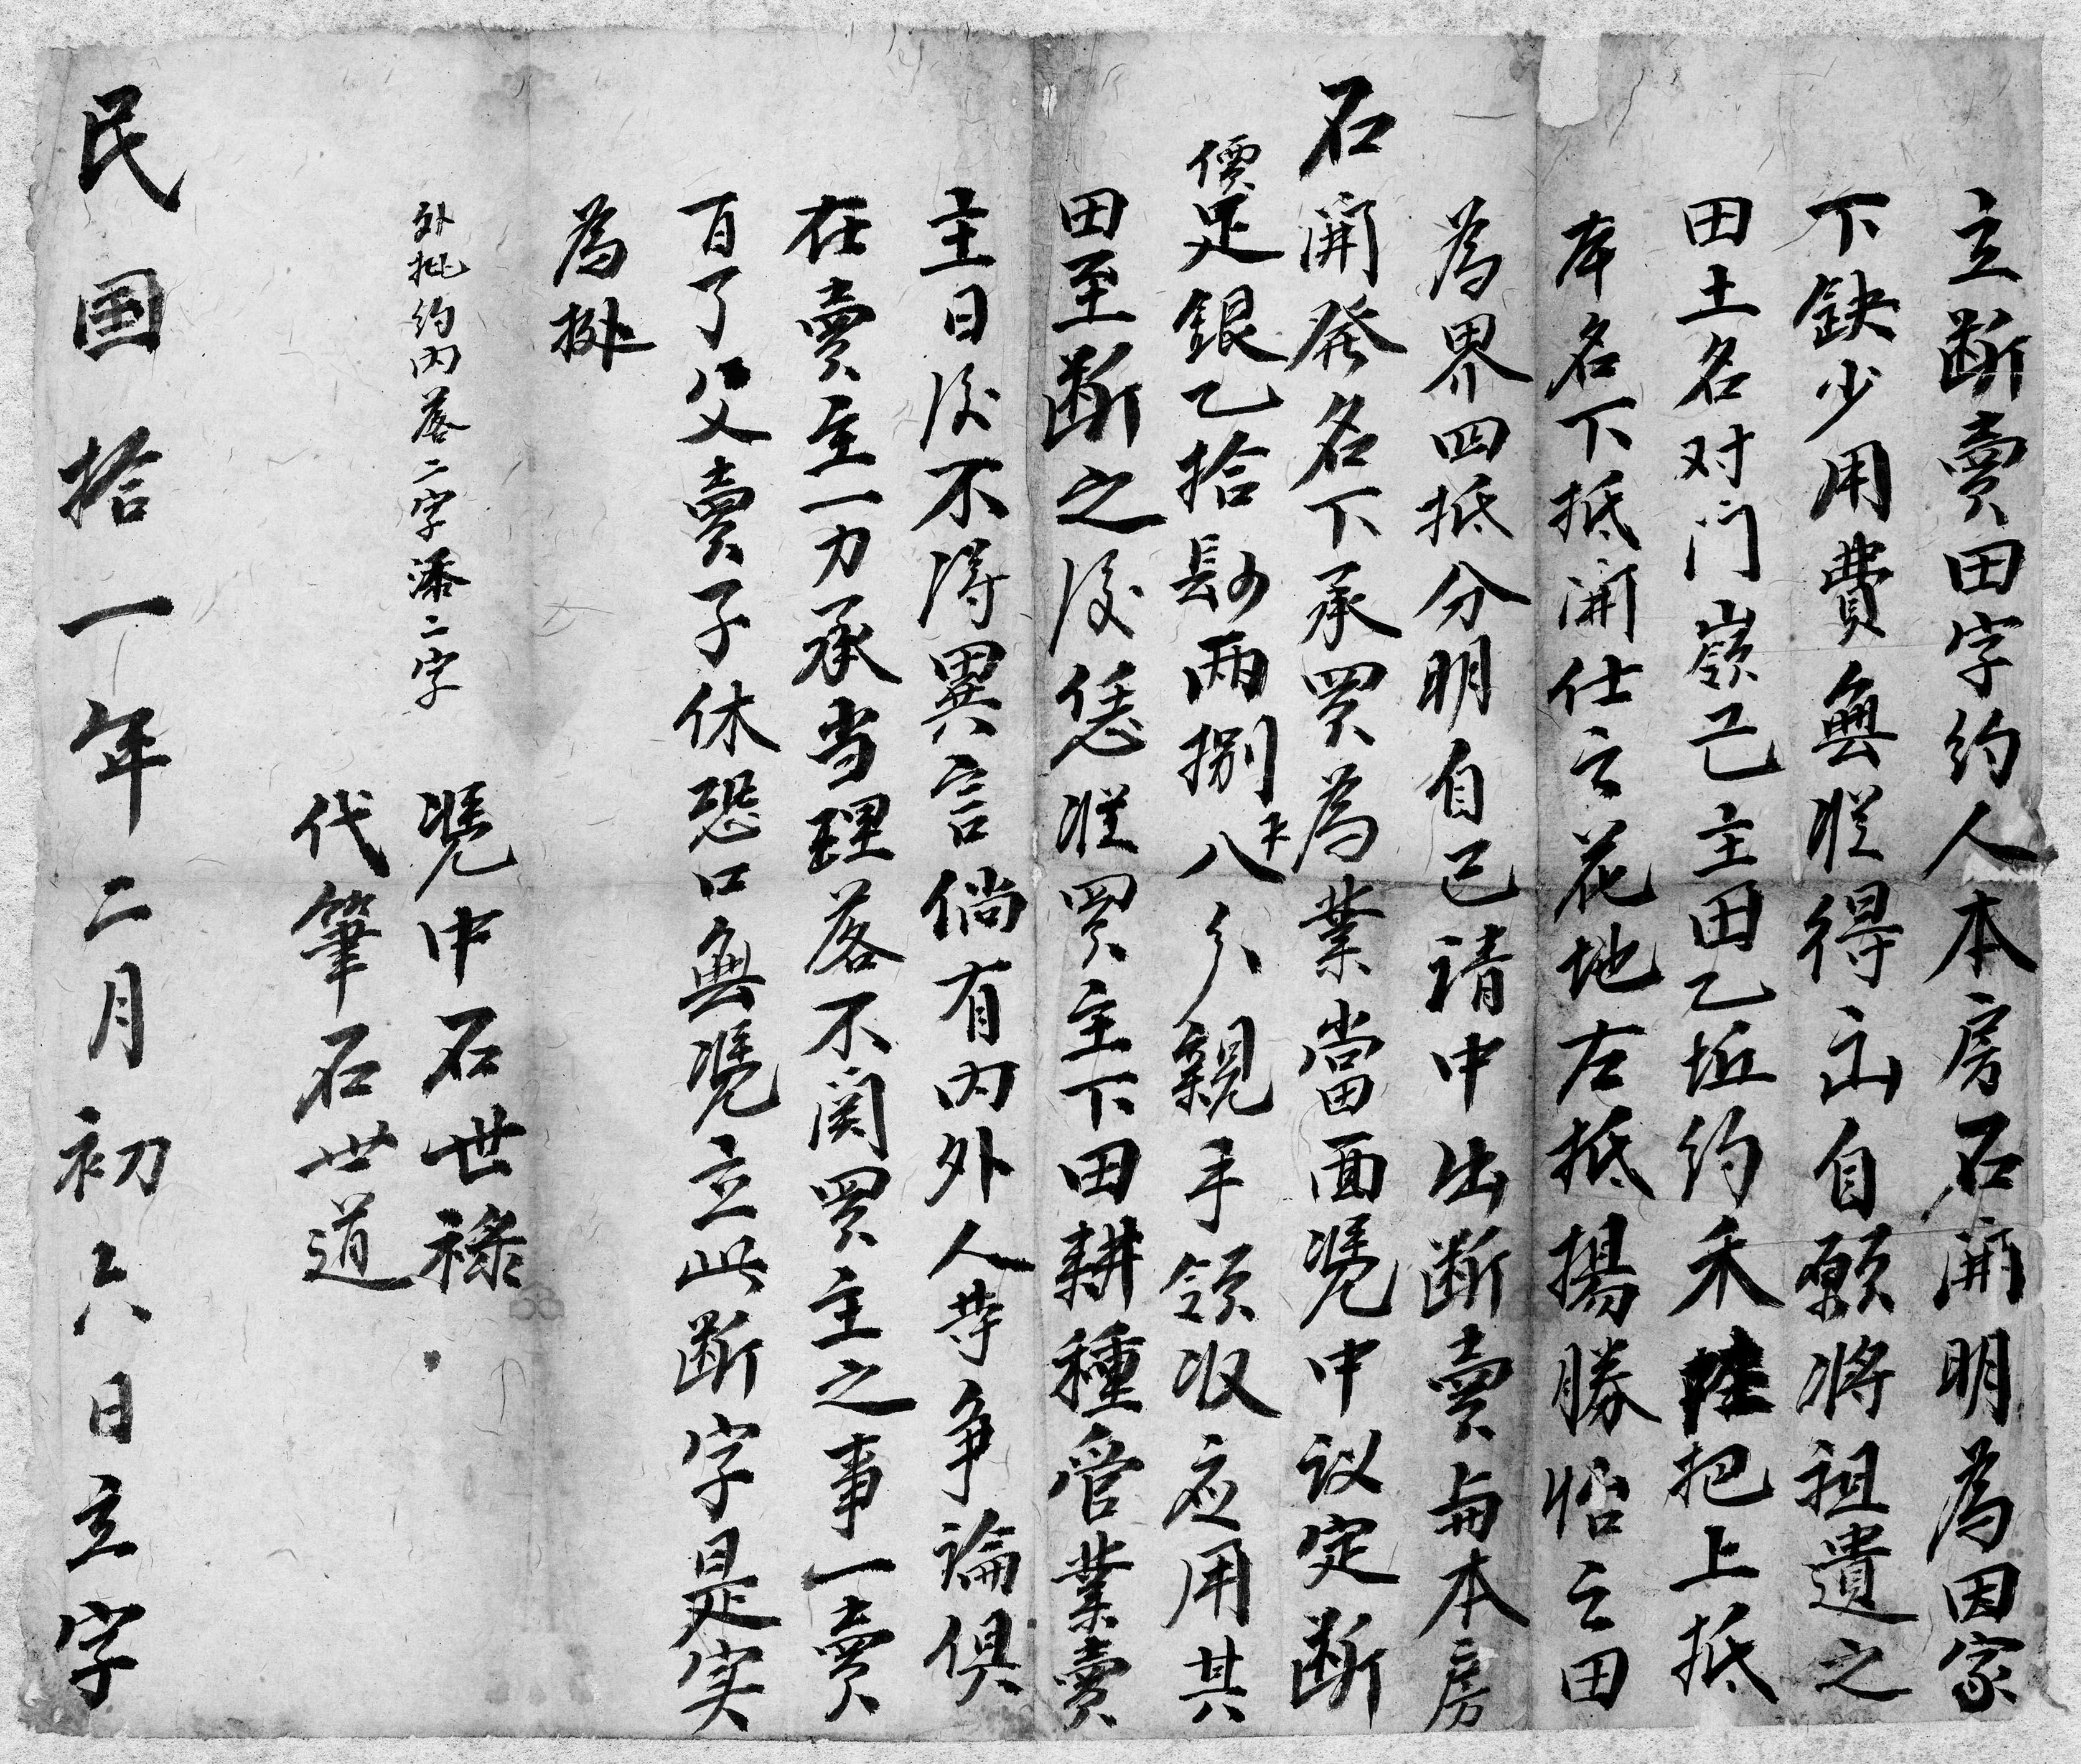 立断賣田字約人本房石開明為因家
下缺少用費無從得出自願将祖遺之
田土名对门嶺己主田乙坵約禾陸把上抵
本名下抵開仕云花地左抵揚勝怡之田
為界四抵分明自己請中出断賣与本房
石開發名下承買為業當面凴中议定断
價足銀乙拾両捌八分親手領收应用其
田至断之後恁從買主下田耕種管業賣
主日後不得異言倘有内外人等争論俱
在賣主一力承当理落不関買主之事一賣
百了父賣子休恐口無凴立此断字是实
為㨿
外批約内落二字添二字
凴中石世祿
代筆石世道
民国拾一年二月初六日立字